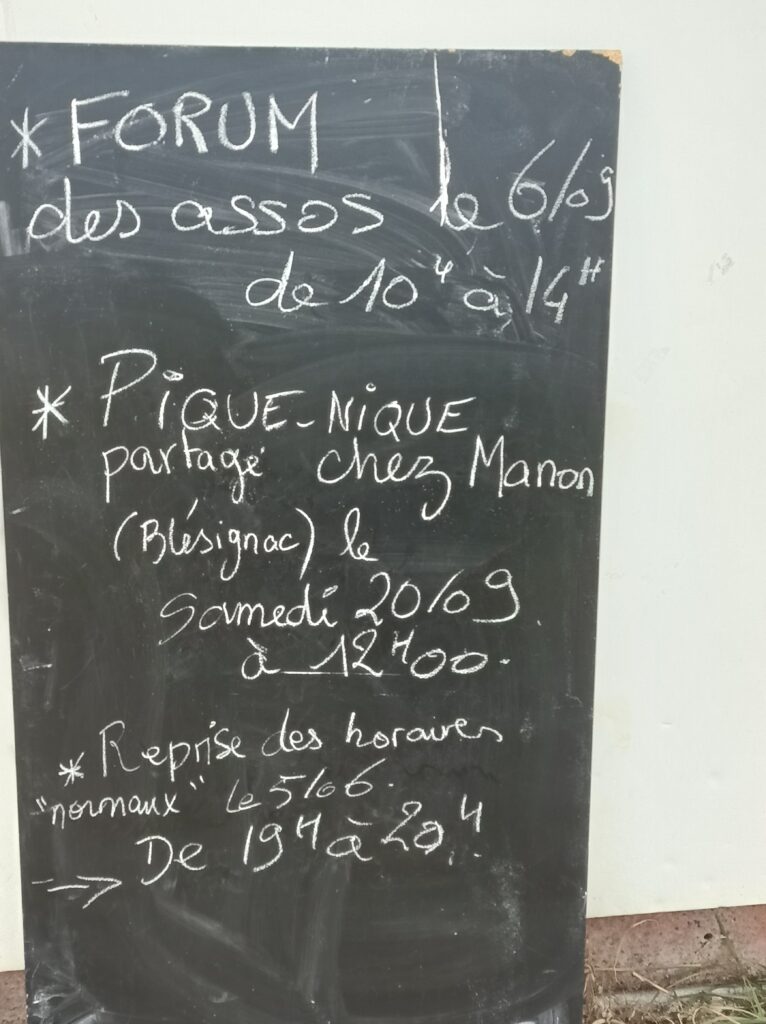 * FORUM
des assos le 6/09
de 10H à 14H
* PIQUE-NIQUE
partagé chez Manon
(Blésignac) le
Samedi 20/09.
à 12H00.
* Reprise des horaires
"normaux" le 5/06.
→ De 19H à 20H.